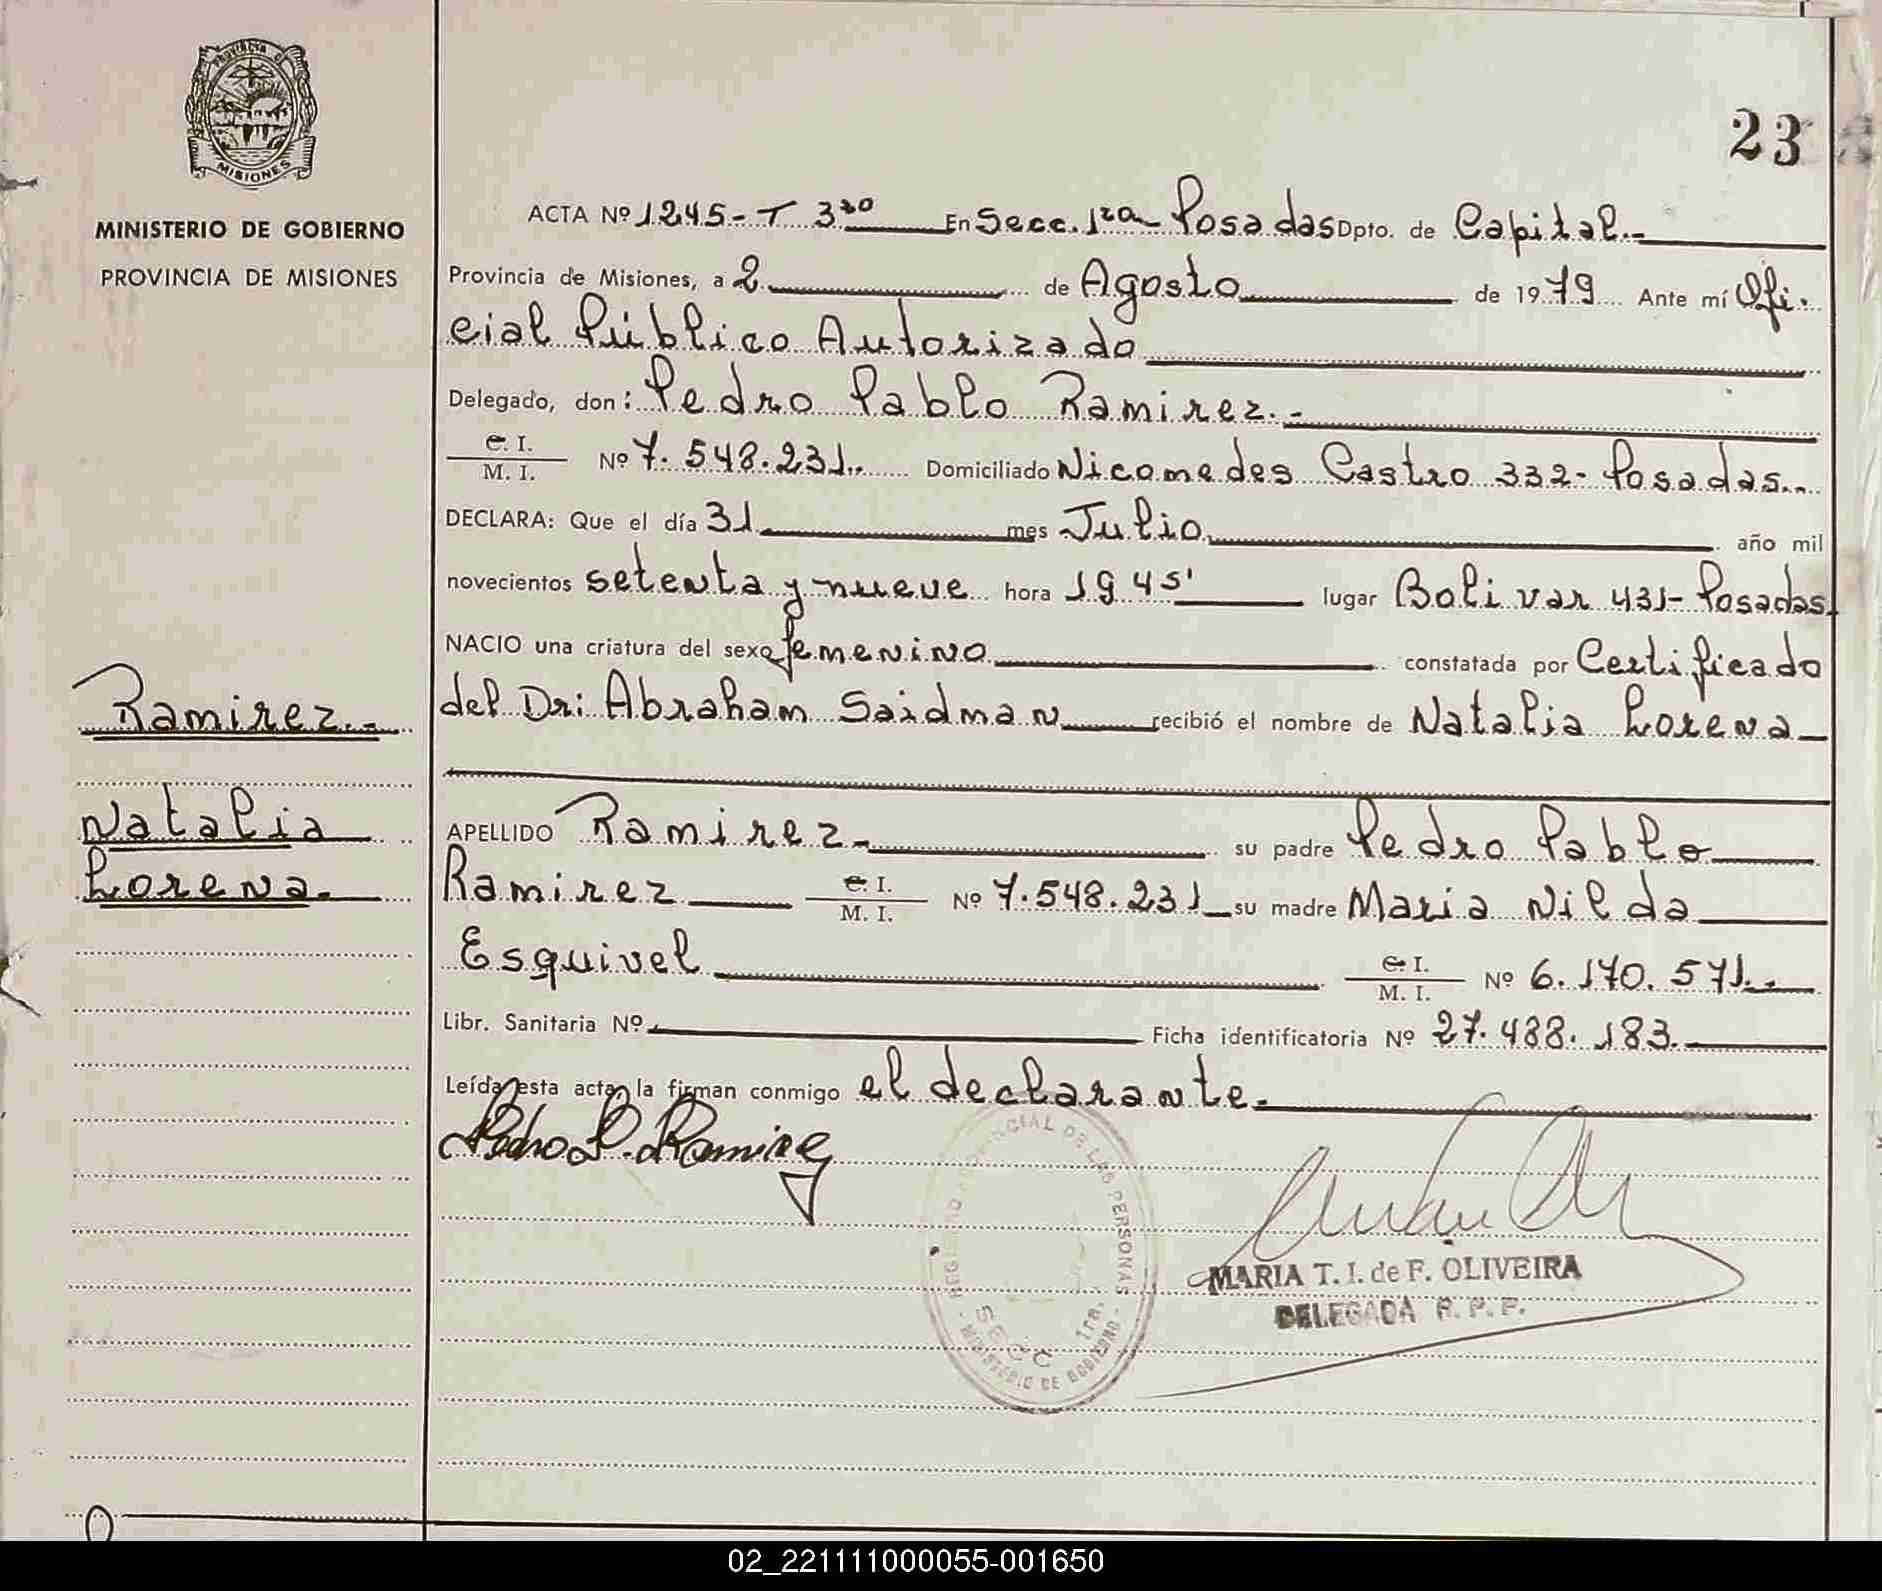 PROVINCIA D
MISIONES
MINISTERIO DE GOBIERNO
PROVINCIA DE MISIONES
23
ACTA Nº 1245-T 3ro En Secc. 1ra Posadas Dpto. de Capital.-
Provincia de Misiones, a 2 de Agosto de 1979 Ante mí Ofi-
cial Público Autorizado
Delegado, don: Pedro Pablo Ramirez.-
C. I.
M. I. Nº 7.548.231.. Domiciliado Nicomedes Castro 332- Posadas..
DECLARA: Que el día 31 mes Julio año mil
novecientos setenta y nueve hora 19 45' lugar Bolivar 431- Posadas.
NACIO una criatura del sexo femenino constatada por Certificado
del Dr: Abraham Saidman recibió el nombre de Natalia Lorena
Ramirez.-
Natalia
Lorena.
APELLIDO Ramirez su padre Pedro Pablo
Ramirez C. I.
M. I. Nº 7.548.231 su madre Maria Nilda
Esquivel C. I.
M. I. Nº 6.170.571..
Libr. Sanitaria Nº Ficha identificatoria Nº 27.488.183.
Leída esta acta, la firman conmigo el declarante.
Pedro P. Ramirez
REGISTRO PROVINCIAL DE LAS PERSONAS
SECC 1ra.
- MINISTERIO DE GOBIERNO -
MARIA T. I. de F. OLIVEIRA
DELEGADA R. P. P.
02_221111000055-001650